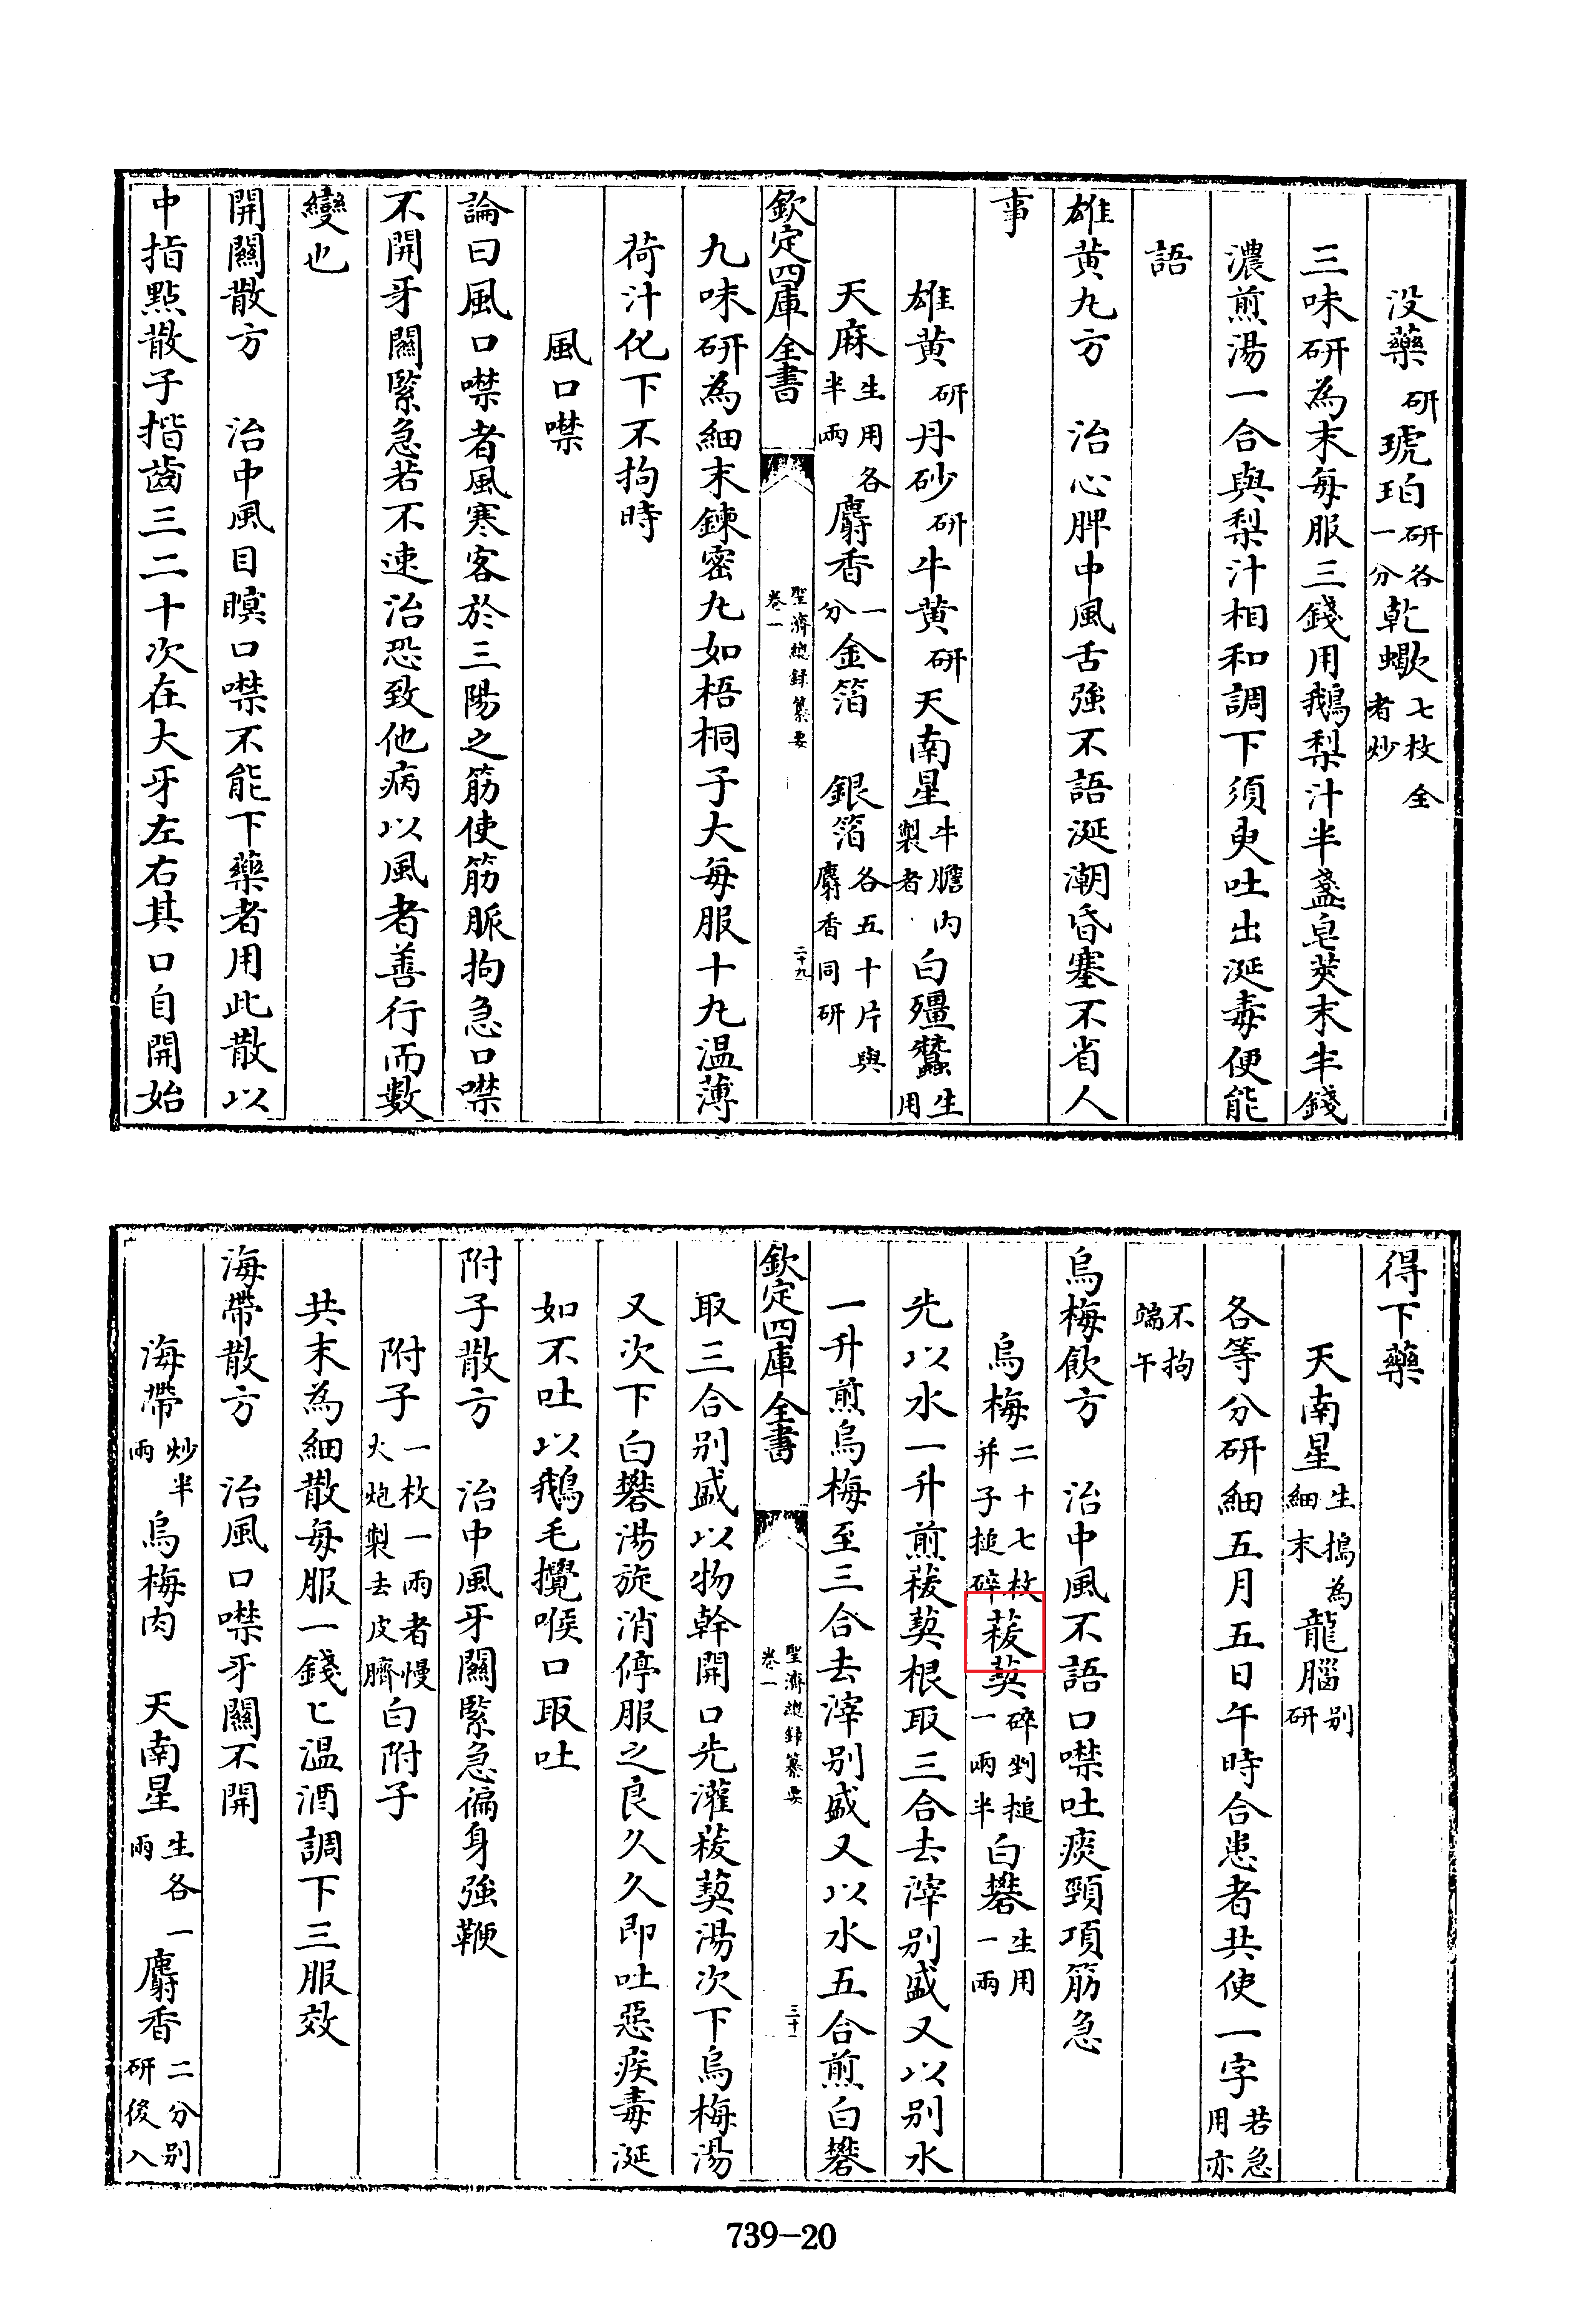 没藥研琥珀研各一分乾蝎七枚全者炒
三味研為末每服三錢用鵝梨汁半盞皂莢末半錢
濃煎湯一合與梨汁相和調下須臾吐出涎毒便能
語
雄黄丸方　治心脾中風舌強不語涎潮昏塞不省人
事
雄黄研丹砂研牛黄研天南星牛膽内製者白殭蠶生用
天麻生用各半兩麝香一分金箔　銀箔各五十片與麝香同研
欽定四庫全書
聖濟總録纂要
卷一
二十九
九味研為細末鍊蜜丸如梧桐子大每服十丸温薄
荷汁化下不拘時
風口噤
論曰風口噤者風寒客於三陽之筋使筋脈拘急口噤
不開牙關緊急若不速治恐致他病以風者善行而數
變也
開關散方　治中風目瞑口噤不能下藥者用此散以
中指點散子揩齒三二十次在大牙左右其口自開始
得下藥
天南星生搗為細末龍腦别研
各等分研細五月五日午時合患者共使一字若急用亦
不拘端午
烏梅飲方　治中風不語口噤吐痰頸項筋急
烏梅二十七枚并子搥碎菝葜碎剉搥一兩半白礬生用一兩
先以水一升煎菝葜根取三合去滓别盛又以别水
一升煎烏梅至三合去滓别盛又以水五合煎白礬
欽定四庫全書
聖濟總録纂要
卷一
三十
取三合别盛以物幹開口先灌菝葜湯次下烏梅湯
又次下白礬湯旋消停服之良久久即吐惡痰毒涎
如不吐以鵝毛攪喉口取吐
附子散方　治中風牙關緊急徧身強鞕
附子一枚一兩者慢火炮製去皮臍白附子
共末為細散每服一錢匕温酒調下三服效
海帶散方　治風口噤牙關不開
海帶炒半兩烏梅肉　天南星生各一兩麝香二分别研後入
739—20